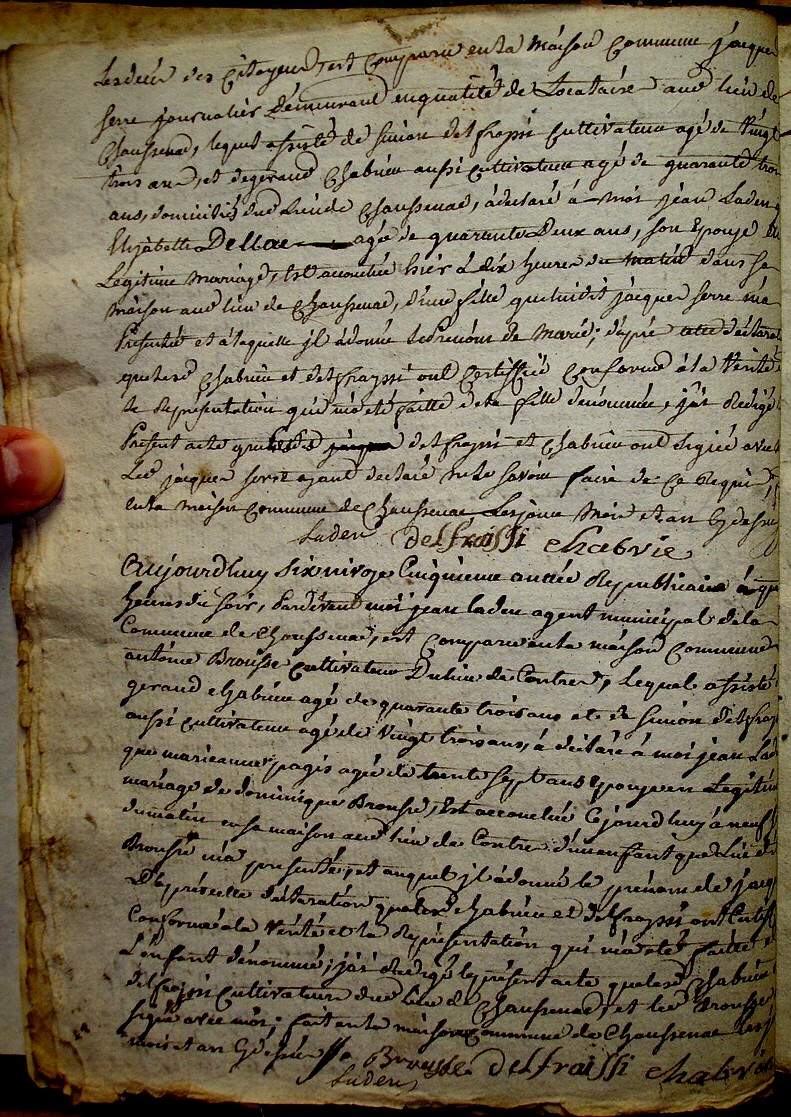 des citoyens, est comparu en la maison commune jacques
serre journalier demeurant en qualité de Locataire aud lieu de
Chaussenac, lequel assisté de simon delfraissi cultivateur agé de vingt
trois ans, et de geraud Chabrieu aussi cultivateur agé de quarante trois
ans, domiciliés dud lieu de Chaussenac, à declaré à moi jean Laden
Elizabette Dellac agée de quarante deux ans, son Epouse En
Légitime mariage, est accouchée hier à dix heures du matin dans sa
maison aud lieu de Chaussenac, d'une fille que ledit jacques serre m'a
Présenté et à laquelle jl àdonné le Prenom de marie; d'apré cette déclara
que lesd Chabrieu et delfrayssi ont Certiffié Conforme à la Verité
la Représentation qui m'a eté faitte de la fille denommée, j'ai Redigé
Present acte que lesd delfrayssi et Chabrieu ont signé avec
Led jacques serre ayant declaré ne le savoir faire de ce Requis,
en la maison commune de Chaussenac Les jour Moi et an
Laden delfraissi chabrie
Aujourdhuy six nivose Cinquieme année Republicaine à
heures du soir, Pardevant moi jean laden agent municipal de la
Commune de Chaussenac, est comparu en la maison commune
antoine Brousse cultivateur Du lieu de Contres, lequel assisté
geraud chabrieu agé de quarante trois ans et de simon delfray
aussi cultivateur agé de Vingt trois ans, à déclaré à moi jean Lad
que marieanne pagis agée de trente sept ans Epouse en Legitim
mariage de dominique Brousse, Est accouchée Cejourdhuy à neuf
du matin en sa maison aud lieu de Contres d'un enfant que led
Brousse m'a presenté, et auquel jl àdonné le prénom de jacq
D'apré celle déclaration que lesd Chabrieu et delfrayssi ont Certif
Conforme à la Vérité et la Représentation qui m'a eté faitte d
L'enfant dénommé; j'ai Redigé le présent acte que lesd Chabrieu
delfrayssi cultivateurs dud lieu de Chaussenac, et led Brousse
signé avec moi; fait en la maison commune de Chaussenac les j
mois et an
Brousse delfraissi chabrie
Laden